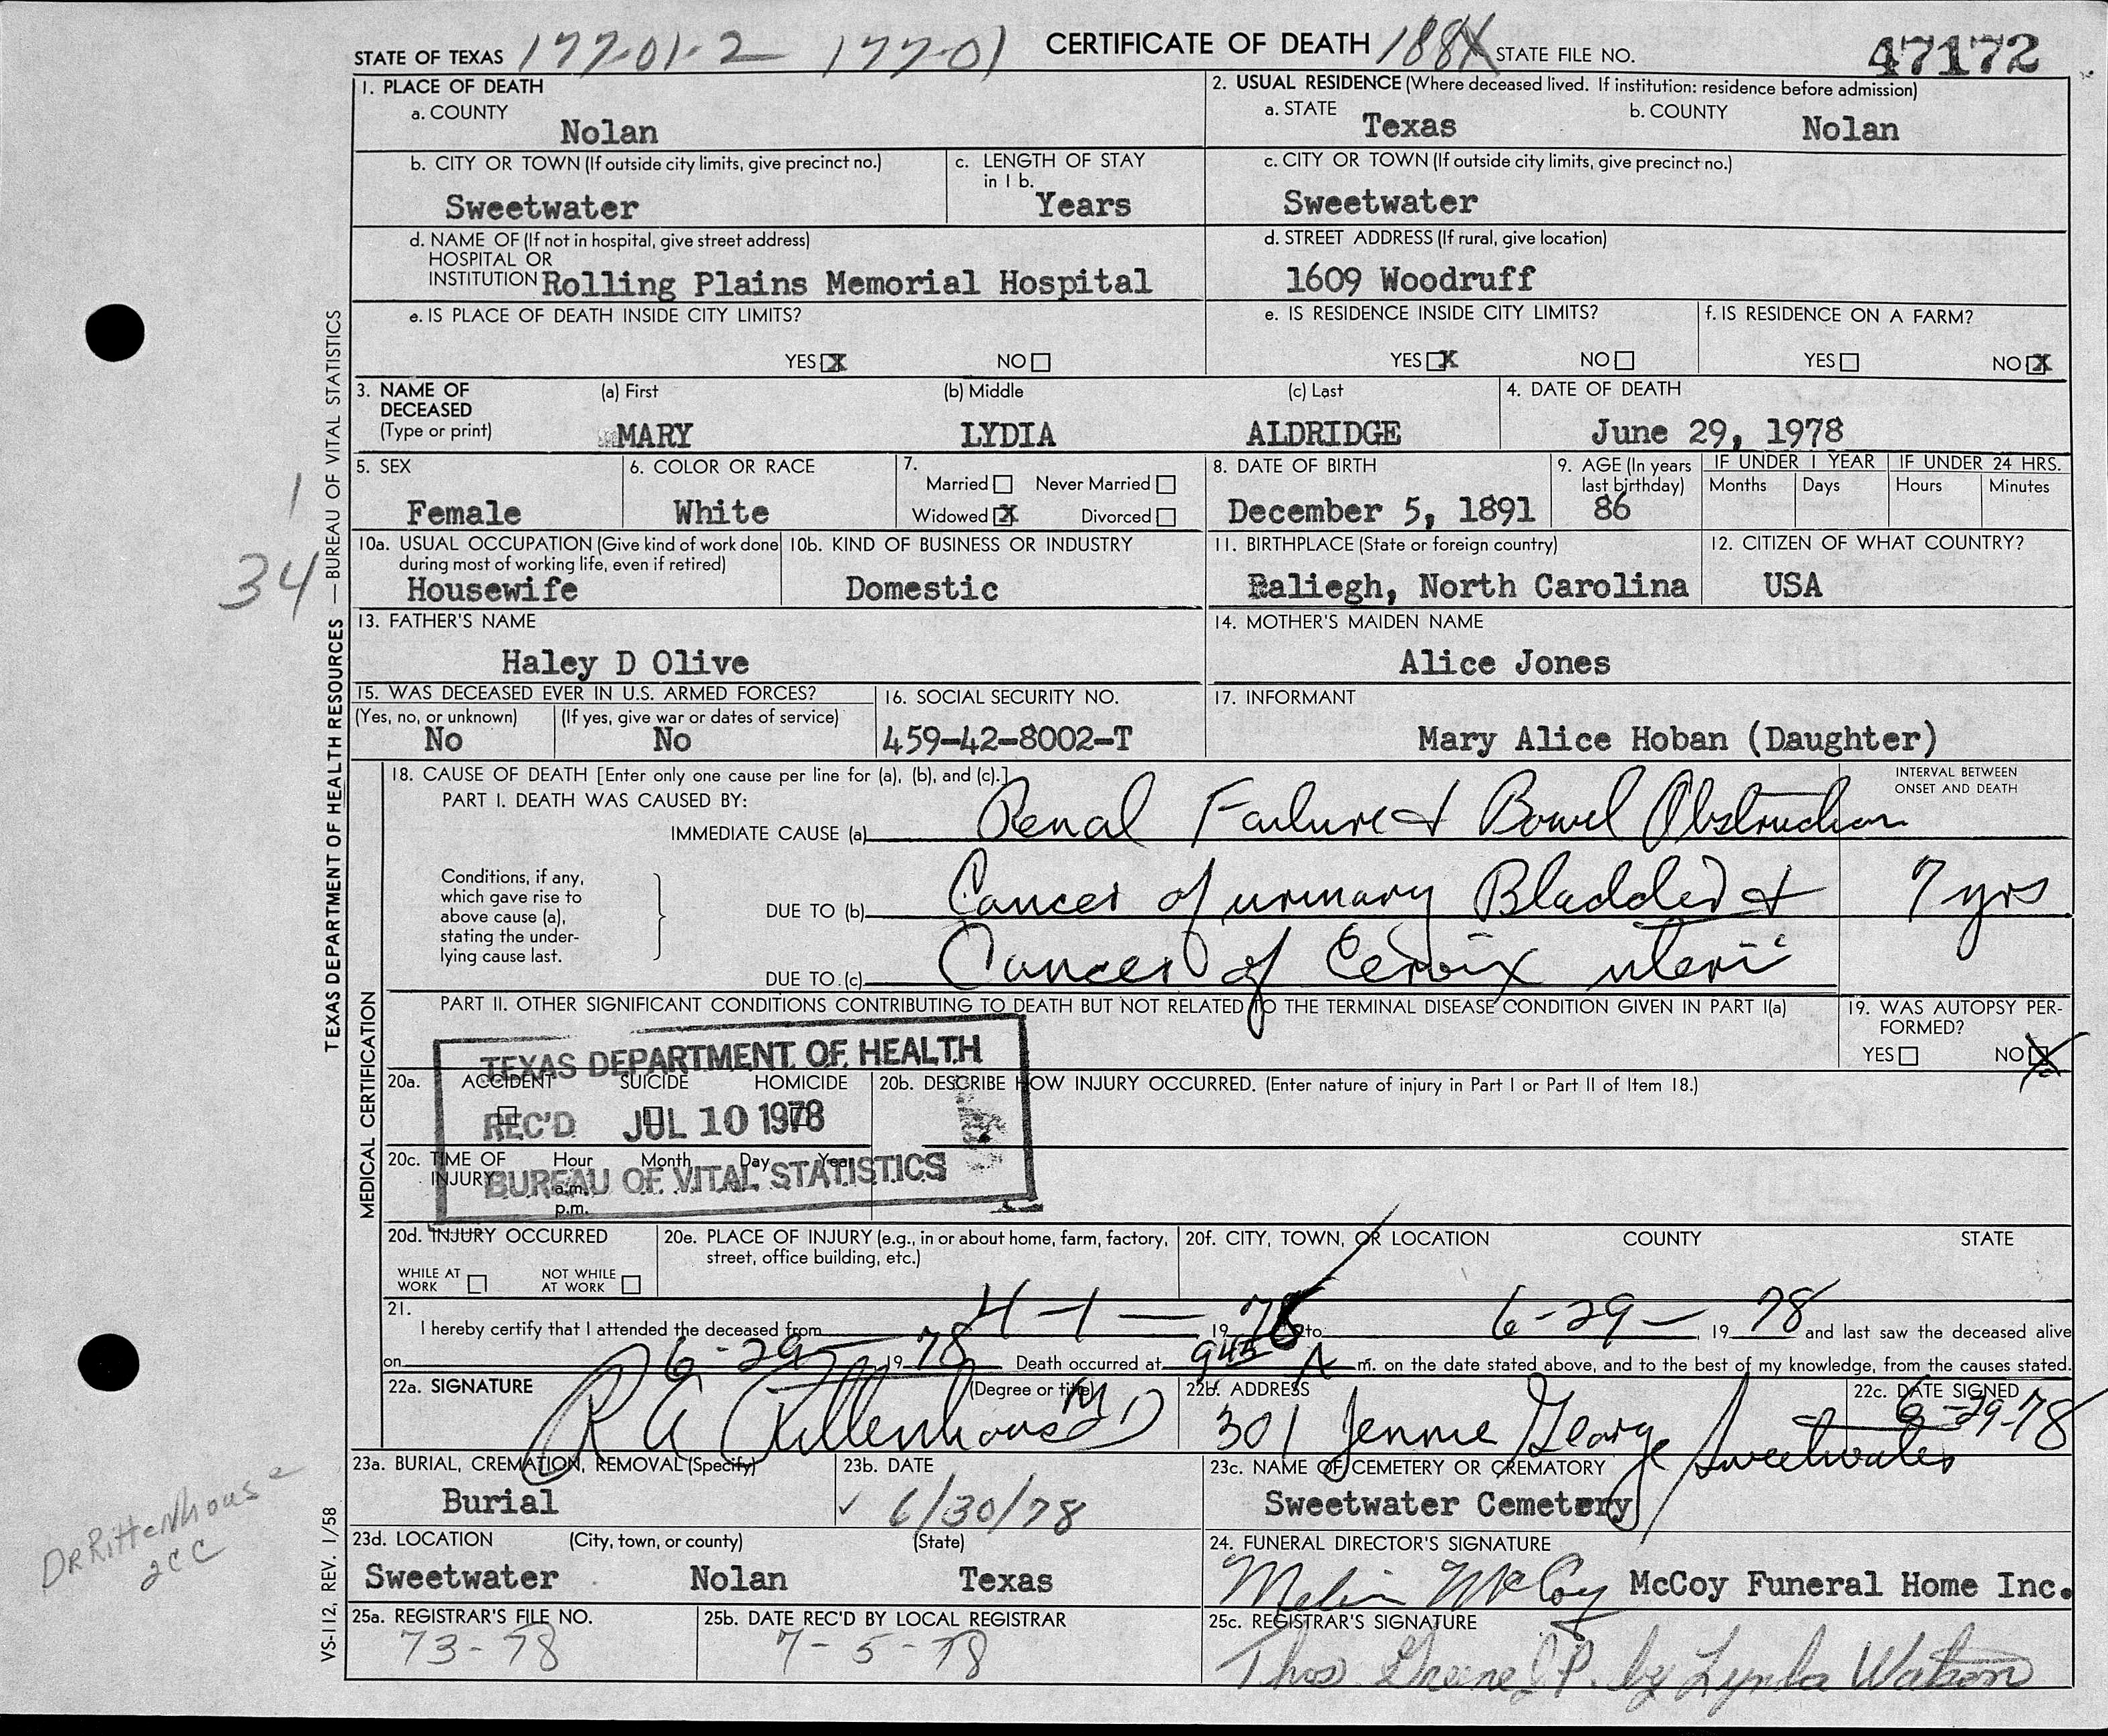 STATE OF TEXAS 177-01-2 177-01 CERTIFICATE OF DEATH 188X STATE FILE NO. 47172
1. PLACE OF DEATH
a. COUNTY
Nolan
2. USUAL RESIDENCE (Where deceased lived. If institution: residence before admission)
a. STATE Texas
b. COUNTY Nolan
b. CITY OR TOWN (If outside city limits, give precinct no.)
Sweetwater
c. LENGTH OF STAY
in 1 b.
Years
c. CITY OR TOWN (If outside city limits, give precinct no.)
Sweetwater
d. NAME OF (If not in hospital, give street address)
HOSPITAL OR
INSTITUTION Rolling Plains Memorial Hospital
d. STREET ADDRESS (If rural, give location)
1609 Woodruff
e. IS PLACE OF DEATH INSIDE CITY LIMITS?
YES X NO
e. IS RESIDENCE INSIDE CITY LIMITS?
YES X NO
f. IS RESIDENCE ON A FARM?
YES NO X
3. NAME OF
DECEASED
(Type or print)
(a) First
MARY
(b) Middle
LYDIA
(c) Last
ALDRIDGE
4. DATE OF DEATH
June 29, 1978
5. SEX
Female
6. COLOR OR RACE
White
7.
Married Never Married
Widowed X Divorced
8. DATE OF BIRTH
December 5, 1891
9. AGE (In years
last birthday)
86
IF UNDER 1 YEAR
Months Days
IF UNDER 24 HRS.
Hours Minutes
10a. USUAL OCCUPATION (Give kind of work done
during most of working life, even if retired)
Housewife
10b. KIND OF BUSINESS OR INDUSTRY
Domestic
11. BIRTHPLACE (State or foreign country)
Raliegh, North Carolina
12. CITIZEN OF WHAT COUNTRY?
USA
13. FATHER'S NAME
Haley D Olive
14. MOTHER'S MAIDEN NAME
Alice Jones
15. WAS DECEASED EVER IN U.S. ARMED FORCES?
(Yes, no, or unknown)
No
(If yes, give war or dates of service)
No
16. SOCIAL SECURITY NO.
459-42-8002-T
17. INFORMANT
Mary Alice Hoban (Daughter)
18. CAUSE OF DEATH [Enter only one cause per line for (a), (b), and (c).]
PART I. DEATH WAS CAUSED BY:
IMMEDIATE CAUSE (a) Renal Failure & Bowel Obstruction
INTERVAL BETWEEN
ONSET AND DEATH
Conditions, if any,
which gave rise to
above cause (a),
stating the under-
lying cause last.
DUE TO (b) Cancer of urinary Bladder &
7 yrs
DUE TO (c) Cancer of Cervix uteri
PART II. OTHER SIGNIFICANT CONDITIONS CONTRIBUTING TO DEATH BUT NOT RELATED TO THE TERMINAL DISEASE CONDITION GIVEN IN PART I(a)
19. WAS AUTOPSY PER-
FORMED?
YES NO X
TEXAS DEPARTMENT OF HEALTH
REC'D JUL 10 1978
BUREAU OF VITAL STATISTICS
20a. ACCIDENT SUICIDE HOMICIDE
20b. DESCRIBE HOW INJURY OCCURRED. (Enter nature of injury in Part I or Part II of Item 18.)
20c. TIME OF Hour Month Day Year
INJURY a.m.
p.m.
20d. INJURY OCCURRED
WHILE AT
WORK
NOT WHILE
AT WORK
20e. PLACE OF INJURY (e.g., in or about home, farm, factory,
street, office building, etc.)
20f. CITY, TOWN, OR LOCATION COUNTY STATE
21.
I hereby certify that I attended the deceased from 4-1- 1978 to 6-29- 1978 and last saw the deceased alive
on 6-29- 1978 Death occurred at 945 A m. on the date stated above, and to the best of my knowledge, from the causes stated.
22a. SIGNATURE (Degree or title)
R A Rittenhouse MD
22b. ADDRESS
301 Jennie George Sweetwater
22c. DATE SIGNED
6-29-78
23a. BURIAL, CREMATION, REMOVAL (Specify)
Burial
23b. DATE
✓ 6/30/78
23c. NAME OF CEMETERY OR CREMATORY
Sweetwater Cemetery
23d. LOCATION (City, town, or county) (State)
Sweetwater Nolan Texas
24. FUNERAL DIRECTOR'S SIGNATURE
Melvin McCoy McCoy Funeral Home Inc.
25a. REGISTRAR'S FILE NO.
73-78
25b. DATE REC'D BY LOCAL REGISTRAR
7-5-78
25c. REGISTRAR'S SIGNATURE
Thos. Greene J.P. by Lynda Watson
TEXAS DEPARTMENT OF HEALTH RESOURCES — BUREAU OF VITAL STATISTICS
MEDICAL CERTIFICATION
VS-112, REV. 1/58
1
34
Dr Rittenhouse
2cc